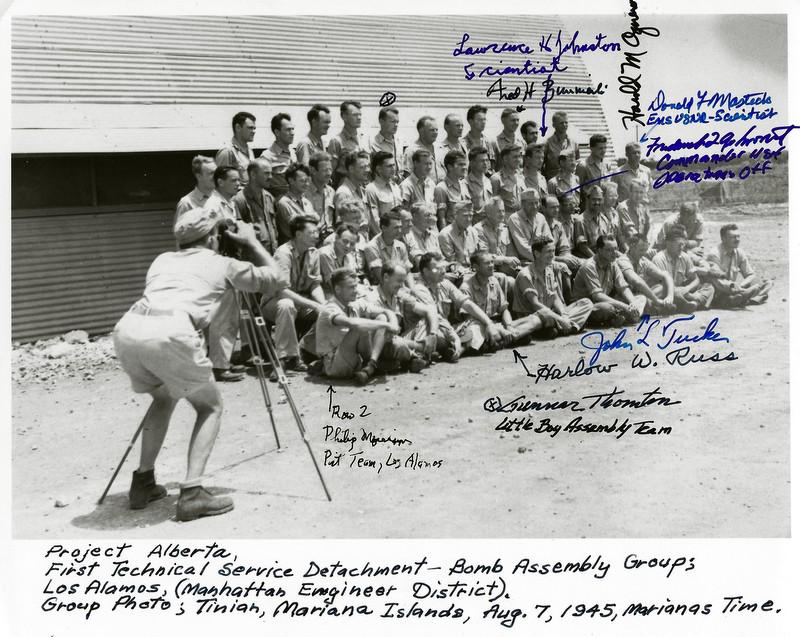 Lawrence H Johnston
Scientist
Harold M Agnew
Donald F Mastick
Ens USNR-Scientist
Frederick L Ashworth
Commander USN
Operations Off
John L Tucker
Harlow W. Russ
Gunnar Thornton
Little Boy Assembly Team
Row 2
Philip Morrison
Pit Team, Los Alamos
Project Alberta,
First Technical Service Detachment - Bomb Assembly Group;
Los Alamos, (Manhattan Engineer District).
Group Photo; Tinian, Mariana Islands, Aug. 7, 1945, Marianas Time.